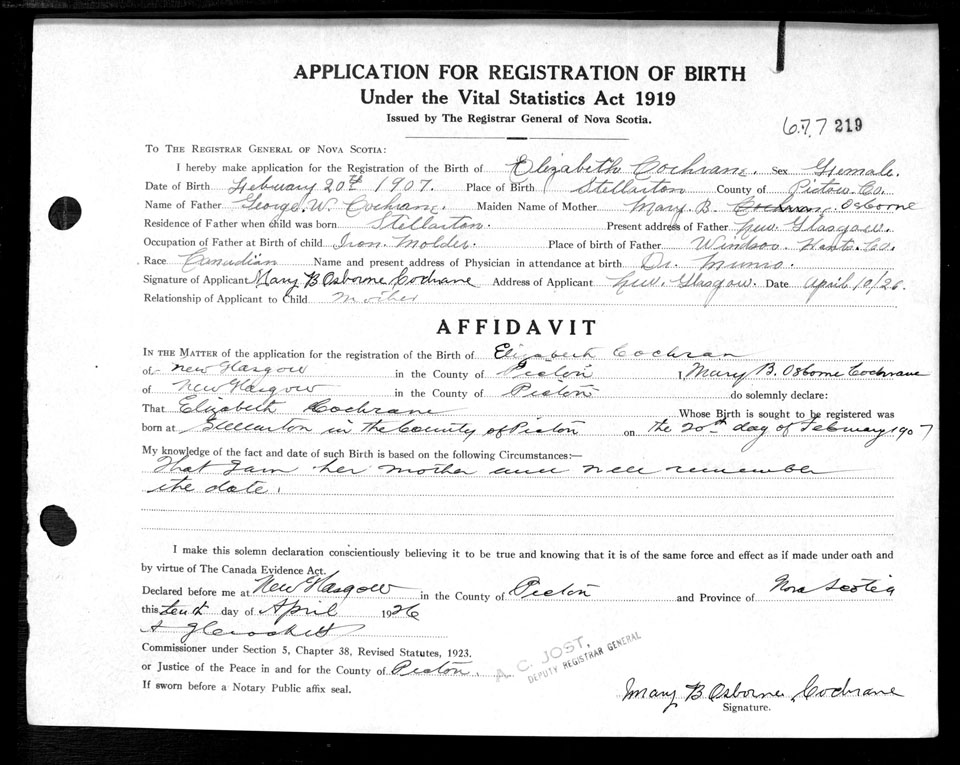 APPLICATION FOR REGISTRATION OF BIRTH
Under the Vital Statistics Act 1919
Issued by The Registrar General of Nova Scotia.
677 219
To The Registrar General of Nova Scotia:
I hereby make application for the Registration of the Birth of Elizabeth Cochrane. Sex Female.
Date of Birth February 20th 1907. Place of Birth Stellarton County of Pictou Co.
Name of Father George W. Cochrane. Maiden Name of Mother Mary B. Cochran. Osborne
Residence of Father when child was born Stellarton Present address of Father New Glasgow.
Occupation of Father at Birth of child Iron Molder. Place of birth of Father Windsor Hants. Co.
Race Canadian Name and present address of Physician in attendance at birth Dr. Munro.
Signature of Applicant Mary B Osborne Cochrane Address of Applicant New. Glasgow. Date April 10/26.
Relationship of Applicant to Child Mother
AFFIDAVIT
In the Matter of the application for the registration of the Birth of Elizabeth Cochran
of New Glasgow in the County of Pictou I, Mary B. Osborne Cochrane
of New Glasgow in the County of Pictou do solemnly declare:
That Elizabeth Cochrane Whose Birth is sought to be registered was
born at Stellarton in the County of Pictou on the 20th day of February 1907
My knowledge of the fact and date of such Birth is based on the following Circumstances:—
That I am her mother and well remember
the date.
I make this solemn declaration conscientiously believing it to be true and knowing that it is of the same force and effect as if made under oath and
by virtue of The Canada Evidence Act.
Declared before me at New Glasgow in the County of Pictou and Province of Nova Scotia
this tenth day of April 1926
Commissioner under Section 5, Chapter 38, Revised Statutes, 1923.
or Justice of the Peace in and for the County of Pictou.
A. C. JOST,
DEPUTY REGISTRAR GENERAL
If sworn before a Notary Public affix seal.
Mary B Osborne Cochrane
Signature.